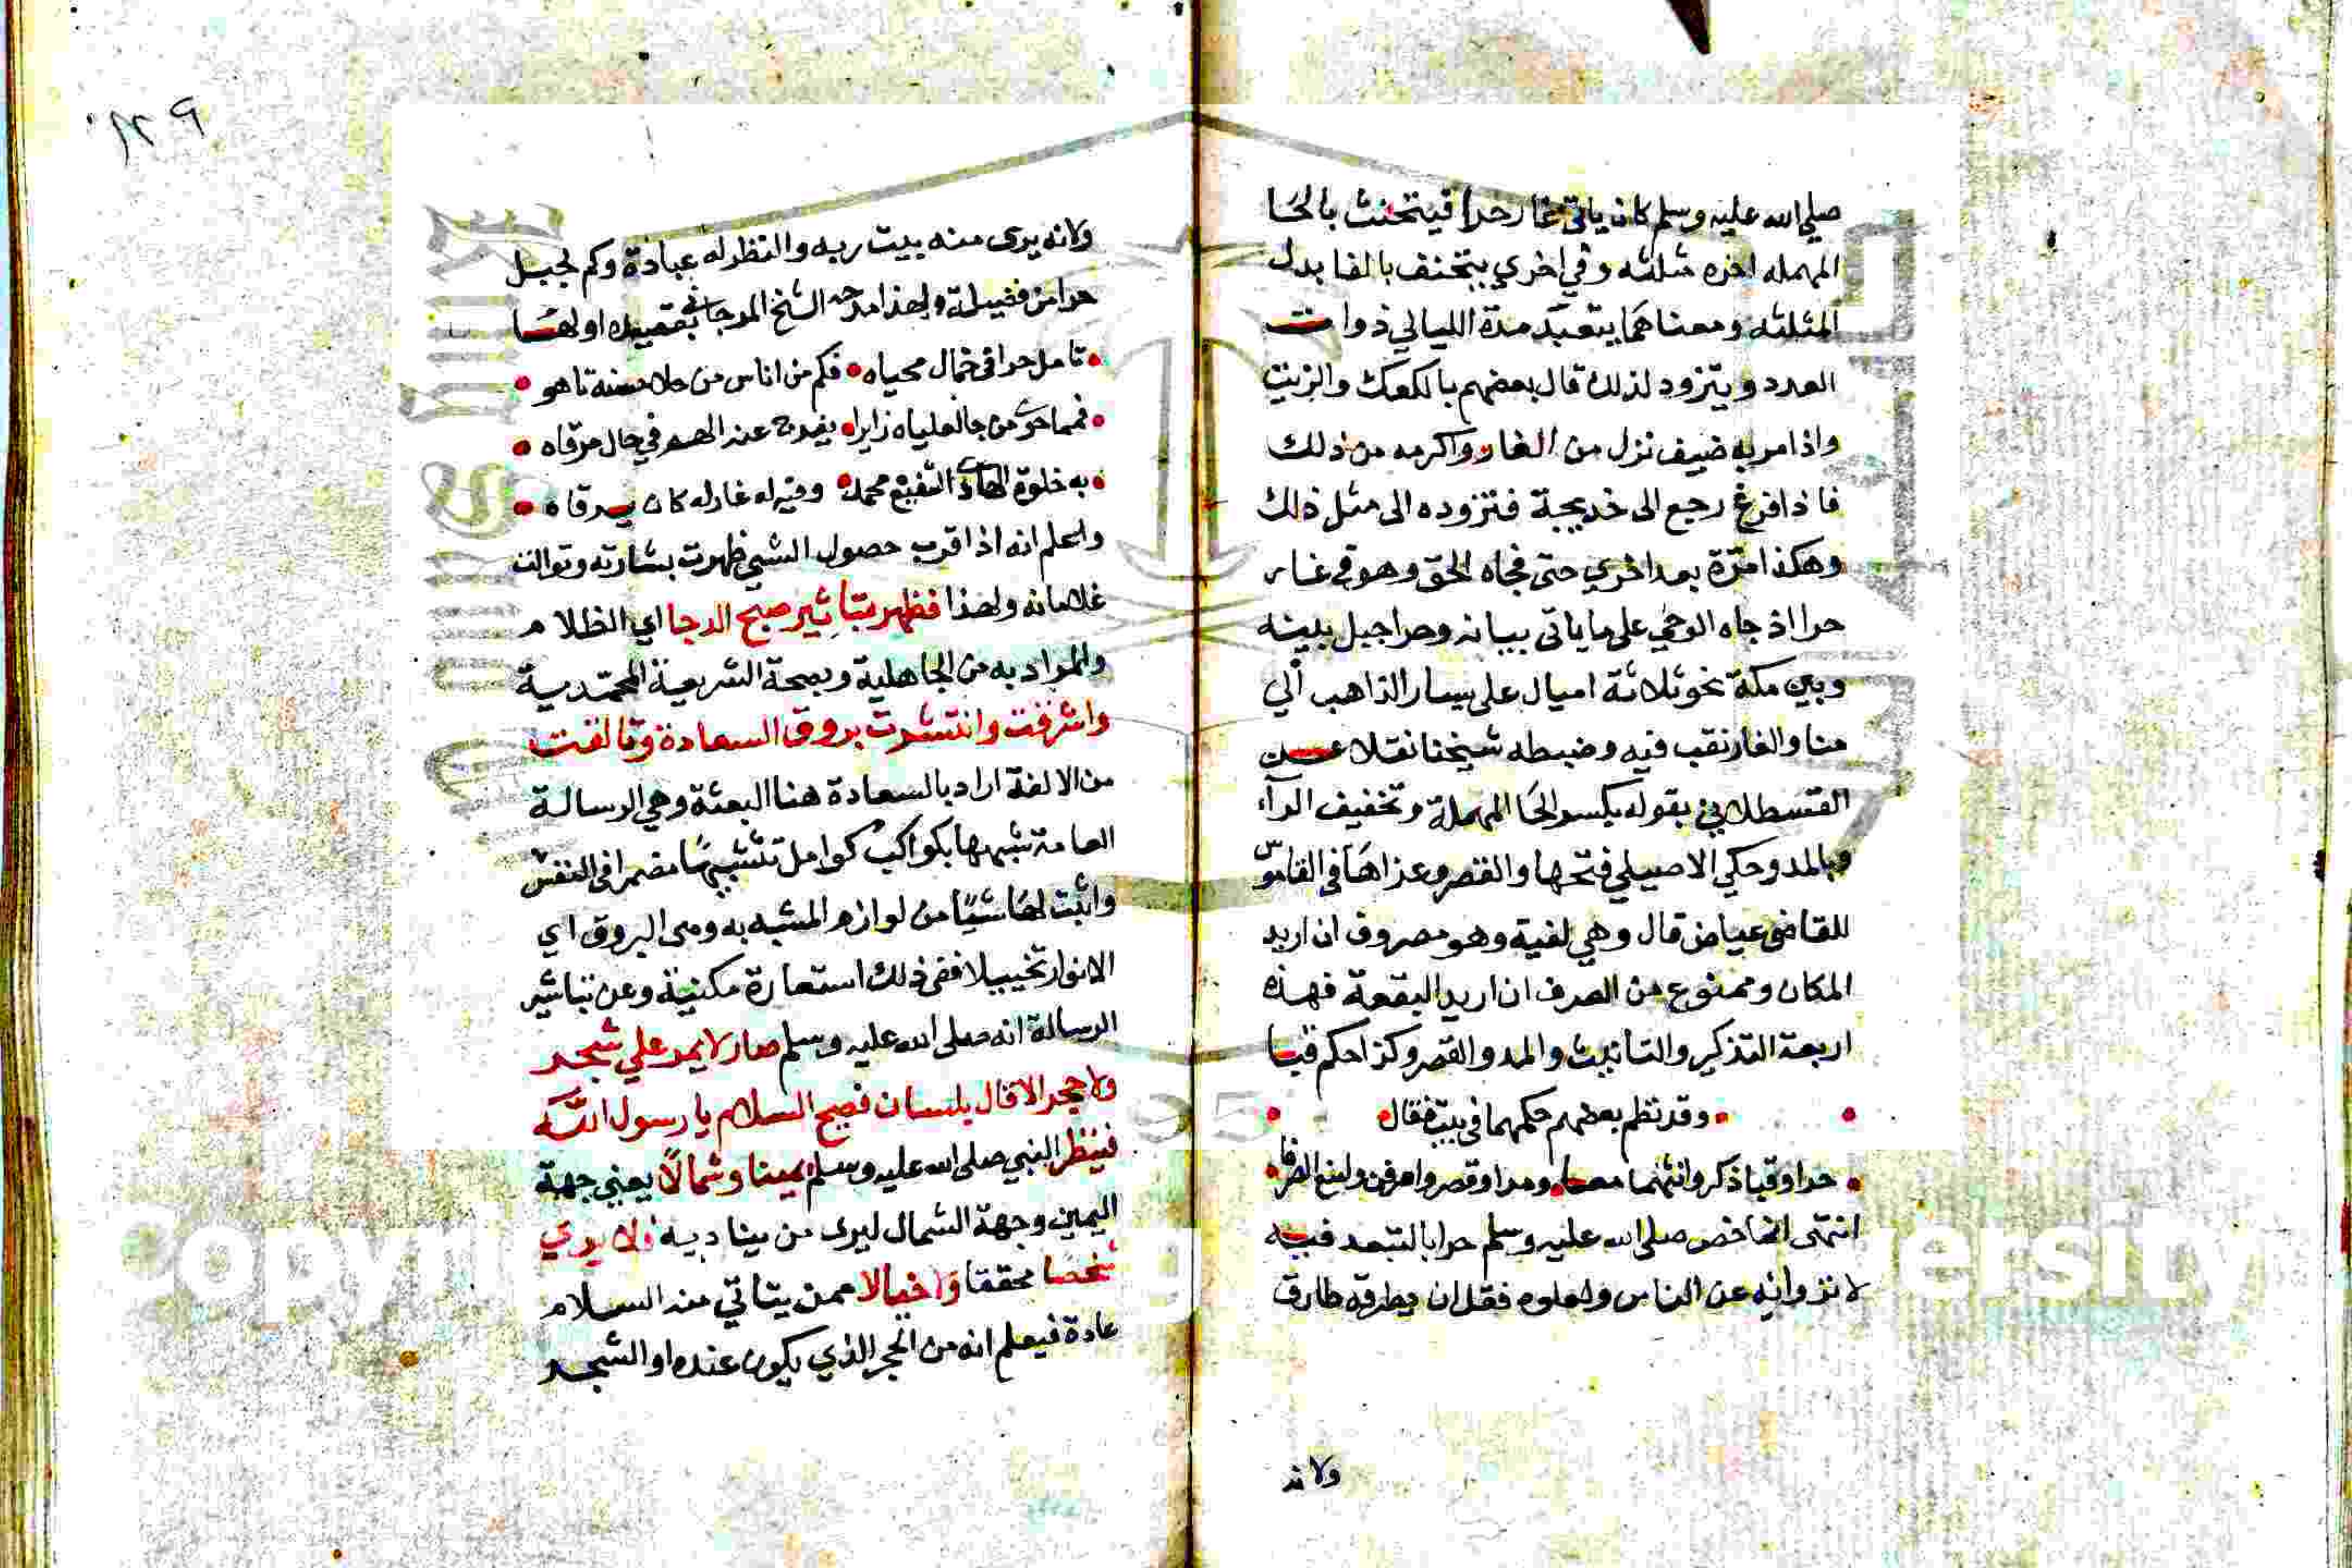 صلي الله عليه وسلم كان ياتي غار حرا فيتحنث بالحا
المهمله اخره مثلثه وفي اخري يتحنف بالفا بدل
المثلثه ومعناهما يتعبد مدة الليالي ذوات
العدد ويتزود لذلك قال بعضهم بالكعك والزيت
واذا مر به ضيف نزل من الغار واكرمه من ذلك
فاذا فرغ رجع الى خديجة فتزوده الى مثل ذلك
وهكذا مرة بعد اخري حتى فجاه الحق وهو في غار
حرا اذ جاه الوحي على ما ياتي بيانه وحرا جبل بينه
وبين مكة نحو ثلاثة اميال على يسار الذاهب الي
منا والغار نقب فيه وضبطه شيخنا نقلا عن
القسطلاني بقوله بكسر الحا المهملة وتخفيف الرآء
وبالمد وحكي الاصيلي فتحها والقصر وعزاها في القاموس
للقاضي عياض قال وهي لغية وهو مصروف ان اريد
المكان وممنوع من الصرف ان اريد البقعة فهذه
اربعة التذكير والتانيث والمد والقصر وكذا حكم قبا
وقد نظم بعضهم حكمهما في بيت فقال
حرا وقبا ذكر وانثهما معا ومد او قصر واصرفن وامنع الصرفا
انتهى انما خص صلى الله عليه وسلم حرا بالتعبد فيه
لانزوائه عن الناس ولعلوه فقل ان يطرقه طارق
ولانه
١٢٩
ولانه يرى منه بيت ربه والنظر له عبادة وكم لجبل
حرا من فضيلة ولهذا مدحه الشيخ المرجاني بقصيده اولها
تامل حرا في جمال محياه فكم من اناس من حلا حسنه تاهو
فمما حوى من جا لعلياه زايرا يفرج عنه الهم في حال مرقاه
به خلوة الهادي الشفيع محمد وفيه له غار له كان يرقاه
واعلم انه اذا قرب حصول الشيي ظهرت بشارته وتوالت
علاماته ولهذا فظهر تباشير صبح الدجا اي الظلام
والمراد به من الجاهلية وبصحة الشريعة المحمدية
واشرفت وانتشرت بروق السعادة وتالفت
من الالفة اراد بالسعادة هنا البعثة وهي الرسالة
العامة شبهها بكواكب كوامل تشبيها مضمرا في النفس
واثبت لها شيًا من لوازم المشبه به ومى البروق اي
الانوار تخييلا ففي ذلك استعارة مكنية وعن تباشير
الرسالة انه صلى الله عليه وسلم صار لا يمر علي شجر
ولا حجر الا قال بلسان فصيح السلام يا رسول الله
فينظر النبي صلى الله عليه وسلم يمينا وشمالًا يعني جهة
اليمين وجهة الشمال ليرى من يناديه فلا يري
شخصا محققا ولا خيالا ممن يتاتي منه السلام
عادة فيعلم انه من الحجر الذي يكون عنده او الشجر